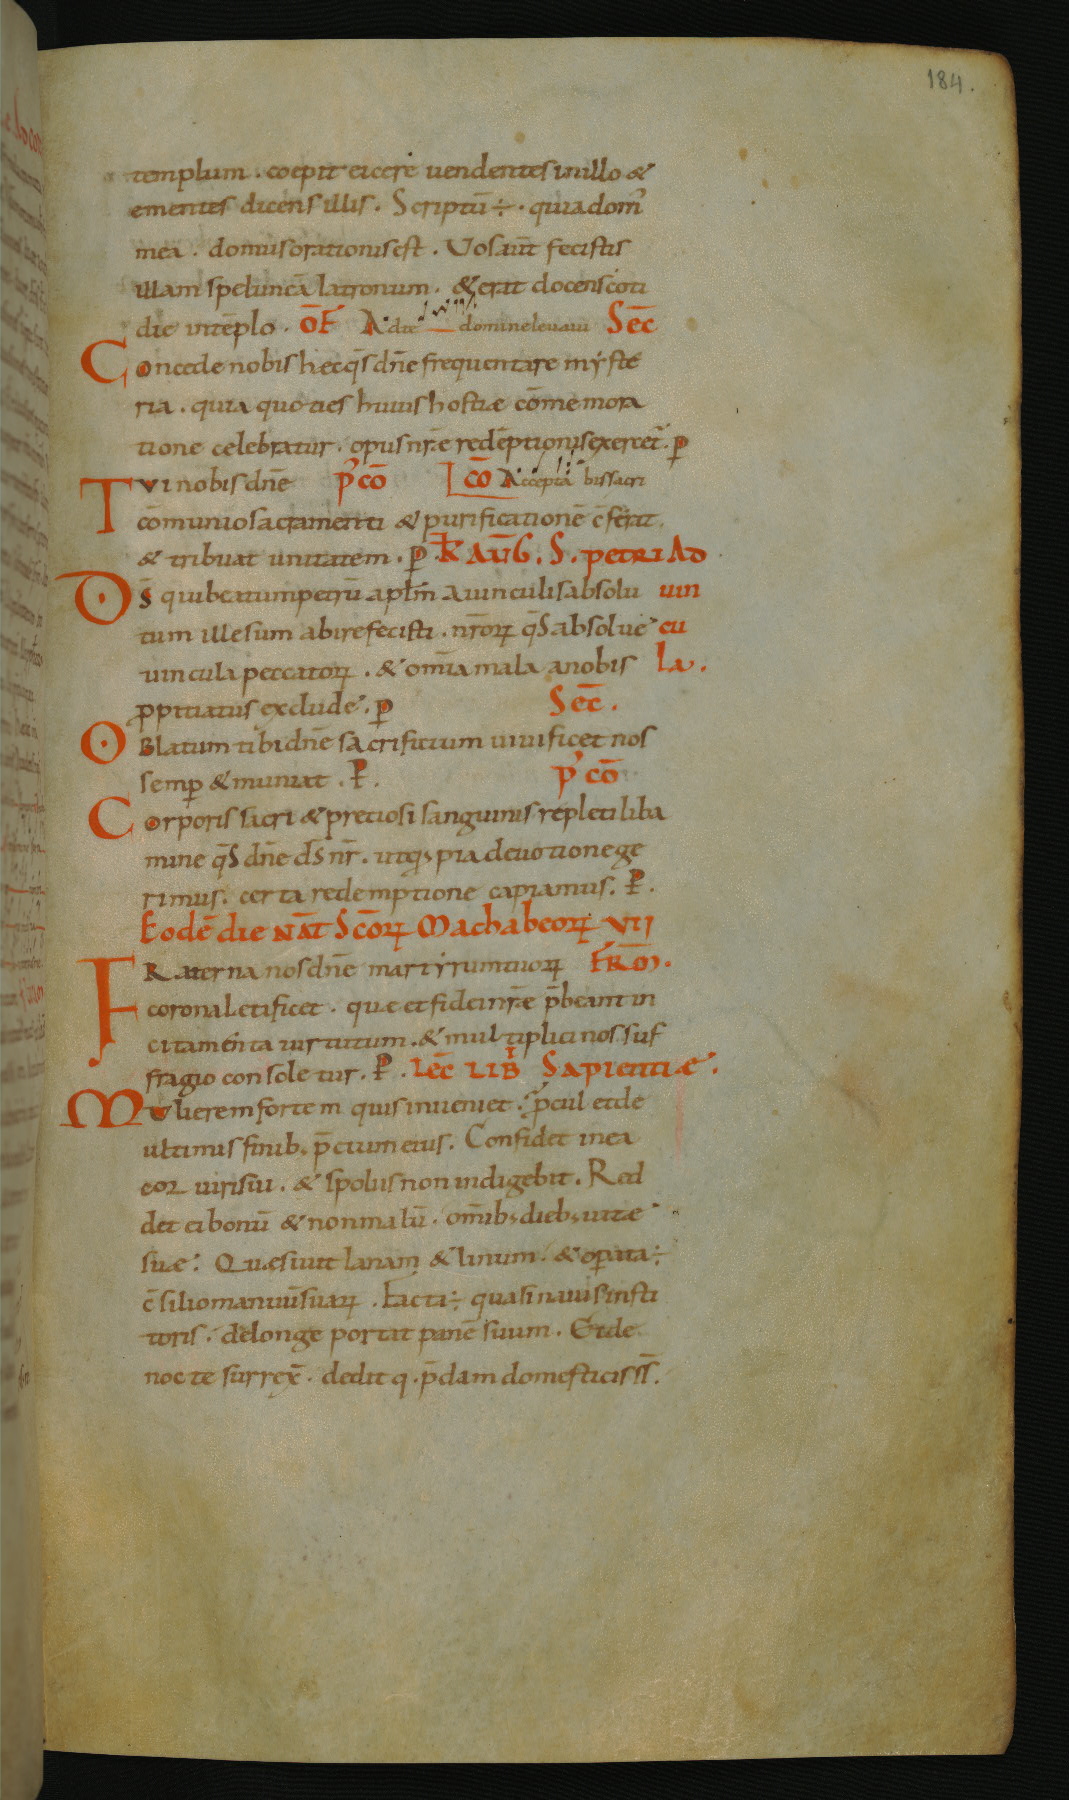 184.
templum . coepit eicere uendentes inillo &
ementes dicens illis . Scriptū ÷ . quia dom'
mea . domus orationis est . Uos aūt fecistis
illam speluncā latronum . & erat docens coti
die intēplo . OF Ad te domine leuaui Sec̄
Concede nobis hec q̄s dn̄e frequentare myste
ria . quia quoties huius hostiæ cōmemora
tione celebratur . opus nr̄e redēptionis exercet̄ . ꝑ
Tui nobis dn̄e p' cō cō Acceptabis sacri
cōmunio sacramenti & purificationē c̄ferat .
& tribuat unitatem . ꝑ . K̄ AUG . S . petri Ad
Ds̄ qui beatum petrū aplm̄ a uinculis absolu uin
tum illesum abire fecisti . nr̄oꝝ q̄s absolue cu
uincula peccatoꝝ . & om̄ia mala a nobis la .
ꝓpitiatus exclude . ꝑ Sec̄ .
Oblatum tibi dn̄e sacrificium uiuificet nos
semꝑ & muniat . P . p' cō
Corporis sacri & pretiosi sanguinis repleti liba
mine q̄s dn̄e ds̄ nr̄ . ut q; pia deuotione ge
rimus . certa redemptione capiamus . P .
Eodē die NAT̄ Sc̄oꝝ Machabeoꝝ VII
Fraterna nos dn̄e martyrum tuoꝝ FRŌM .
corona letificet . quæ et fidei nr̄e p̄beant in
citamenta uirtutum . & multiplici nos suf
fragio consoletur . P . Lec̄ LIB Sapientiæ .
Mulierem fortem quis inueniet . ꝓcul et de
ultimis finib; p̄cium eius . Confidet in ea
cor uiri sui . & spoliis non indigebit . Red
det ei bonū & non malū . om̄ib; dieb; uitæ
suæ . Quæsiuit lanam & linum . & oꝑata ÷
c̄silio manuū suaꝝ . Facta ÷ quasi nauis insti
toris . de longe portat panē suum . Et de
nocte surrex̄ . dedit q . p̄dam domesticis s̄s .